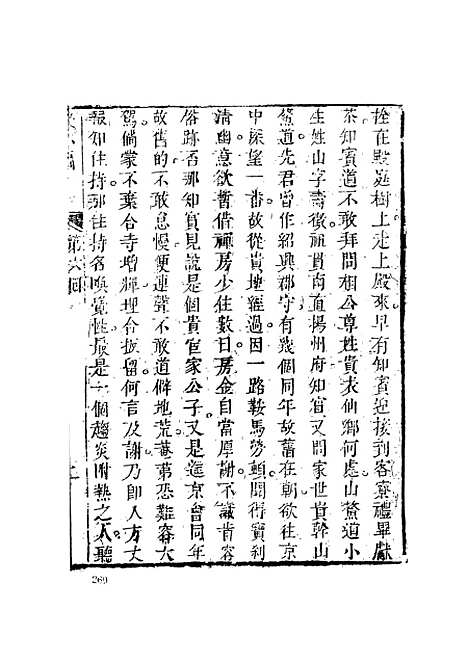 拴在殿庭樹上走上殿來早有知賓迎接到客寮禮畢獻
茶知賓道不敢拜問相公尊姓貴表仙鄉何處山鰲道小
生姓山字壽徵祖貫南直揚州府知賓又問家世貴幹山
鰲道先君曾作紹興郡守有幾個同年故舊在朝欲往京
中探望一番故從貴地經過因一路鞍馬勞頓聞得寶刹
清幽意欲暫借禪房少住數日房金自當厚謝不識肯容
俗跡否那知賓見說是個貴宦家公子又是進京會同年
故舊的不敢怠慢便連聲不敢道僻地荒菴第恐難容大
駕倘蒙不棄合寺增輝理合扳留何言及謝乃即入方丈
報知住持那住持名喚覺性最是一個趨炎附熱之人聽
第六回
269